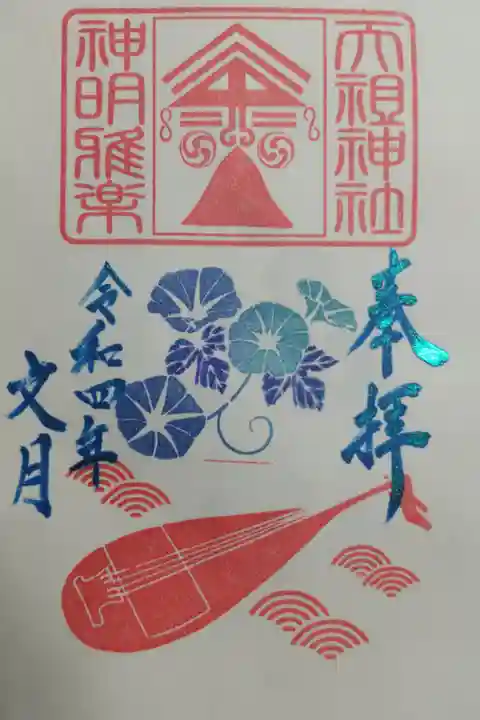 天祖神社
神明雅楽
奉拝
令和四年
文月